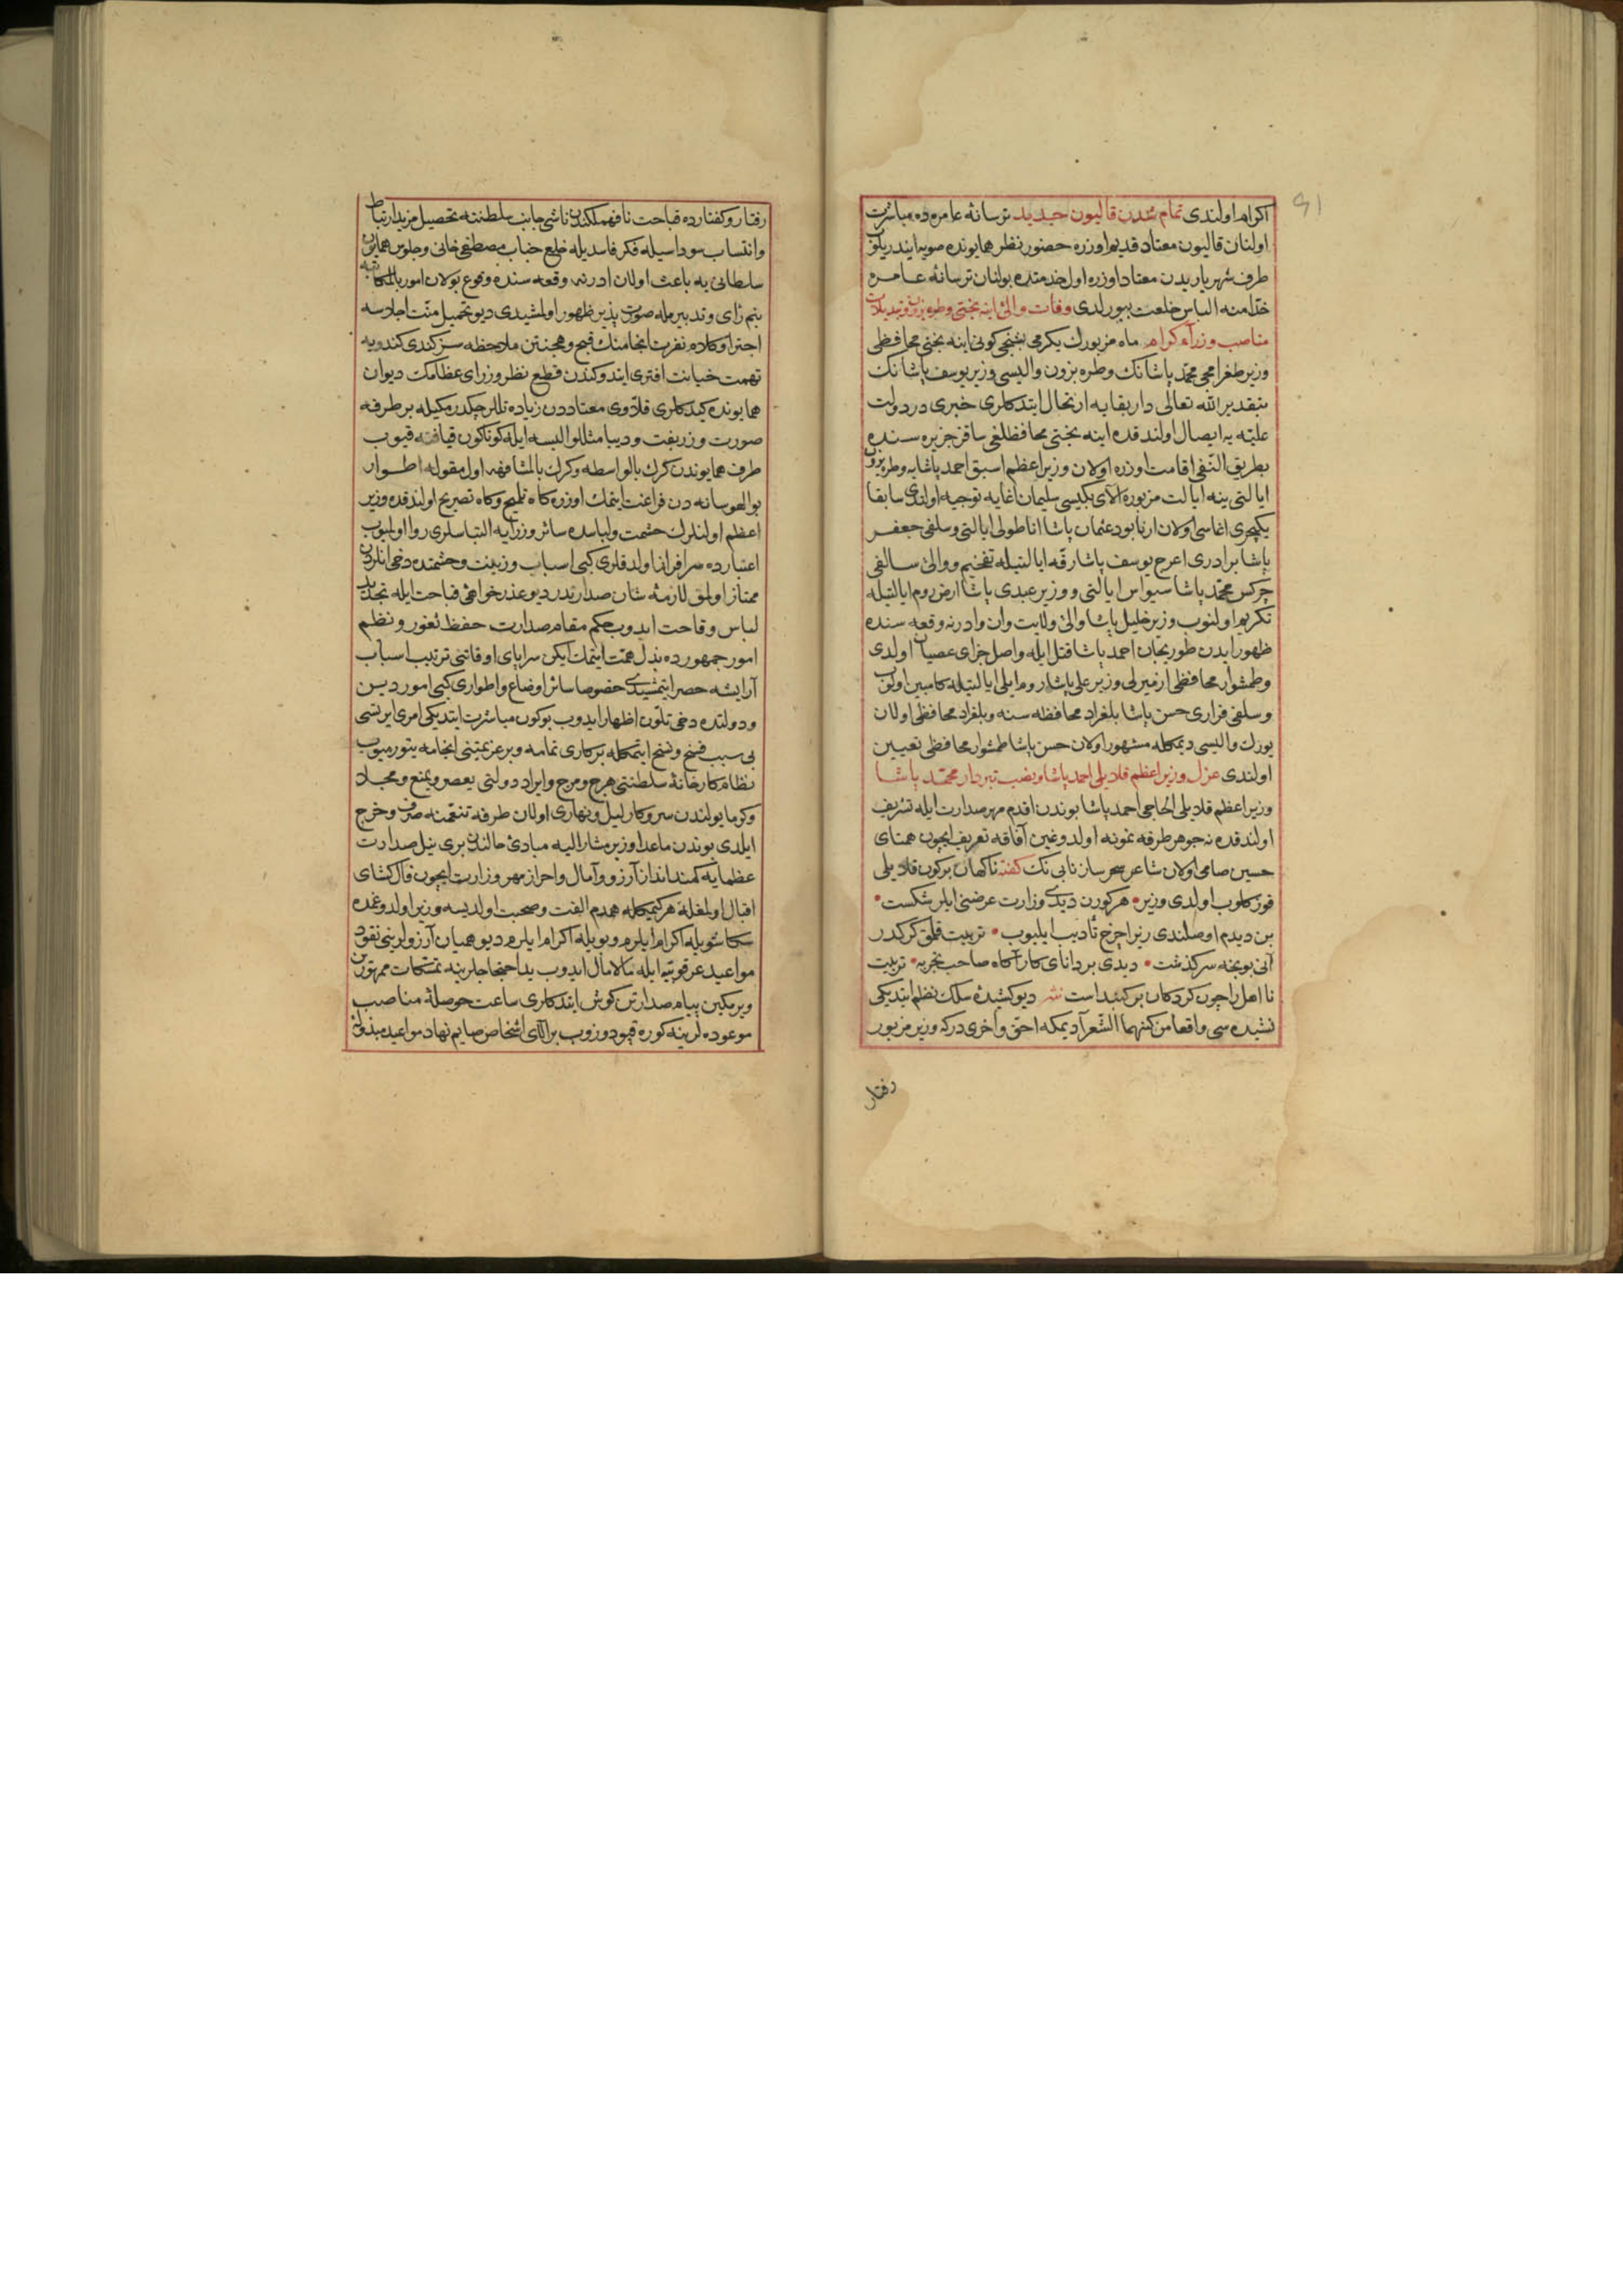 اكرام اولندی تمام شدن قالیون جدید ترسانهٔ عامره ده مباشرت
اولنان قالیون معتاد قدیم اوزره حضور نظر همایونده صویه ایندریلوب
طرف شهریاریدن معتاد اوزره اول خدمتده بولنان ترسانهٔ عامره
خدّامنه الباس خلعت بیورلدی وفات والئ اینه بختی وطره بزون وتبدیلات
مناصب وزرآء كرام ماه مزبورك یكرمی بشنجی كونی اینه بختی محافظی
وزیر طغرامجی محمّد پاشانك وطره بزون والیسی وزیر یوسف پاشانك
بتقدیر الله تعالی دار بقایه ارتحال ایتدكلری خبری در دولت
علیّه یه ایصال اولندقده اینه بختی محافظلغی ساقز جزیره سنده
بطریق النّفی اقامت اوزره اولان وزیر اعظم اسبق احمد پاشایه وطره بزون
ایالتی ینه ایالت مزبوره آلای بكیسی سلیمان اغایه توجیه اولندی سابقا
یكیچری اغاسی اولان ارنابود عثمان پاشا اناطولی ایالتی وسلفی جعفر
پاشا برادری اعرج یوسف پاشا رقّه ایالتیله تفخیم ووالئ سالفی
چركس محمّد پاشا سیواس ایالتی ووزیر عبدی پاشا ارض روم ایالتیله
تكریم اولنوب وزیر خلیل پاشا والئ ولایت وان وادرنه وقعه سنده
ظهور ایدن طوریجان احمد پاشا قتل ایله واصل جزای عصیان اولدی
وطمشوار محافظی ازمیرلی وزیر علی پاشا روم ایلی ایالتیله كامبین اولوب
وسلفی فراری حسن پاشا بلغراد محافظه سنه وبلغراد محافظی اولان
یورك والیسی دیمكله مشهور اولان حسن پاشا طمشوار محافظی تعیین
اولندی عزل وزیر اعظم قلایلی احمد پاشا ونصب تبردار محمّد پاشا
وزیر اعظم قلایلی الحاجی احمد پاشا بوندن اقدم مهر صدارت ایله تشریف
اولندقده نه جوهر طرفه نمونه اولدوغین آفاقه تعریف ایچون همنای
حسین صامی اولان شاعر سحر ساز نابی نك كفته ناكهان بر كون قلایلی
قوز كلوب اولدی وزیر • هر كورن دیدی وزارت عرضنی ایلر شكست •
بن دیدم اوصلندی زیرا چرخ تأدیب ایلیوب • تربیت قلمق كركدر
آنی بو بخه سركذشت • دیدی بر دانای كار آكاه صاحب تجربه • تربیت
نا اهل را چون كردكان بر كنبد است نثر دیو كشیدهٔ سلك نظم ایتدیكی
نشیده سی واقعا من كنهما الشّعرآ دیمكه احق واخری دركه وزیر مزبور
رفتار
رفتار وكفتارده قباحت نافهملكندن ناشی جانب سلطنته تحصیل مزید ارتباط
وانتساب سوداسیله فكر فاسدیله خلع جناب مصطفی خانی وجلوس همایون
سلطانی یه باعث اولان ادرنه وقعه سنده وقوع بولان امور بالمكاتبه
بنم رای وتدبیرمله صورت پذیر ظهور اولمشیدی دیو تحمیل منّت اجلاسه
اجترا وكلام نفرت انجامنك قبح وهجنتن ملاحظه سز كندی كندویه
تهمت خیانت افتری ایدوكندن قطع نظر وزرای عظامك دیوان
همایونده كیدكلری قلاّوی معتاددن زیاده تللر چكدرمكیله بر طرفه
صورت وزربفت ودیبا مثللو البسه ایله كوناكون قیافته قیوب
طرف همایوندن كرك بالواسطه وكرك بالمشافهه اول مقوله اطوار
بوالهوسانه دن فراغت ایتمك اوزره كاه تلمیح وكاه تصریح اولندقده وزیر
اعظم اولنلرك حشمت ولباسده سائر وزرایه التباسلری روا اولمیوب
اعتبارده سرافراز اولدقلری كبی اسباب وزینت وحشمتده دخی انلردن
ممتاز اولمق لازمهٔ شان صدارتدر دیو عذر خواهئ قباحت ایله تجدید
لباس وقاحت ایدوب حكم مقام صدارت حفظ ثغور ونظم
امور جمهورده بذل همّت ایتمك ایكن سراپای اوقاتنی ترتیب اسباب
آرایشه حصر ایتمشیدی خصوصا سائر اوضاع واطواری كبی امور دین
ودولتده دخی تلوّن اظهار ایدوب بوكون مباشرت ایتدیكی امری ایرتسی
بی سبب فسخ ونسخ ایتمكله بر كاری تمامه وبر عزیمتنی انجامه یتورمیوب
نظام كارخانهٔ سلطنتی هرج ومرج وایراد دولتی
ایلدی بوندن ماعدا وزیر مشار الیه مبادئ حالندن بری نیل صدارت
عظمایه كمند انداز آرزو وآمال واحراز مهر وزارت ایچون فال كشای
اقبال اولمغله هر كیمكله همدم الفت وصحبت اولدیسه وزیر اولدوغمده
سكا شویله اكرام ایلرم وبویله اكرام ایلرم دیو همیان آرزولرینی نقود
مواعید عرقوبیّه ایله مالامال ایدوب ید احتجاجلرینه تمسّكات ممهورن
ویرمكین پیام صدارتن كوش ایتدكلری ساعت حوصلهٔ مناصب
موعوده لرینه كوره قپود وزوب برالای اشخاص صایم نهاد مواعید مبذوله